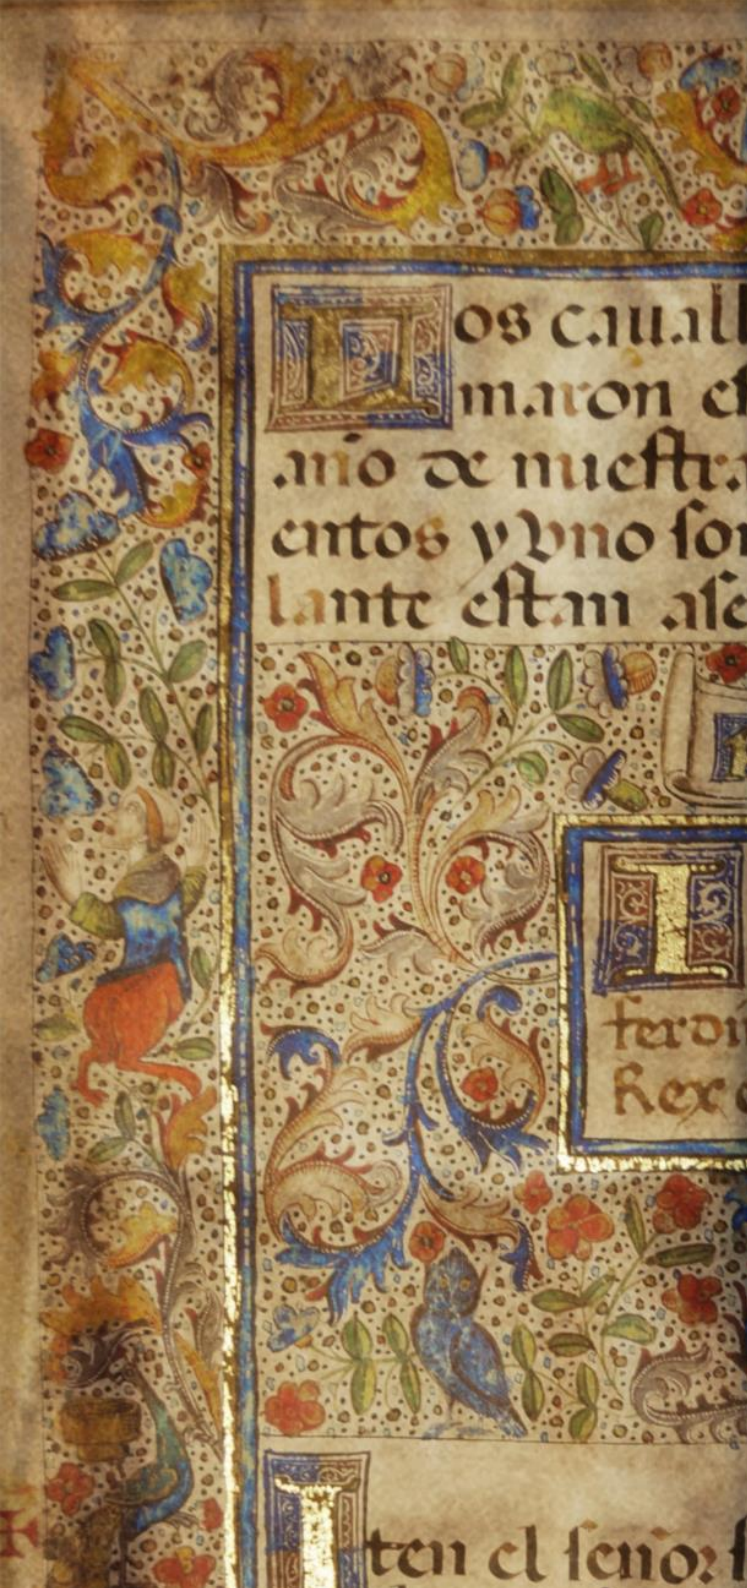 Los cauall
maron es
año de nuestra
entos y vno son
lante estan ase
I
ferdin
Rex
Iten el señor